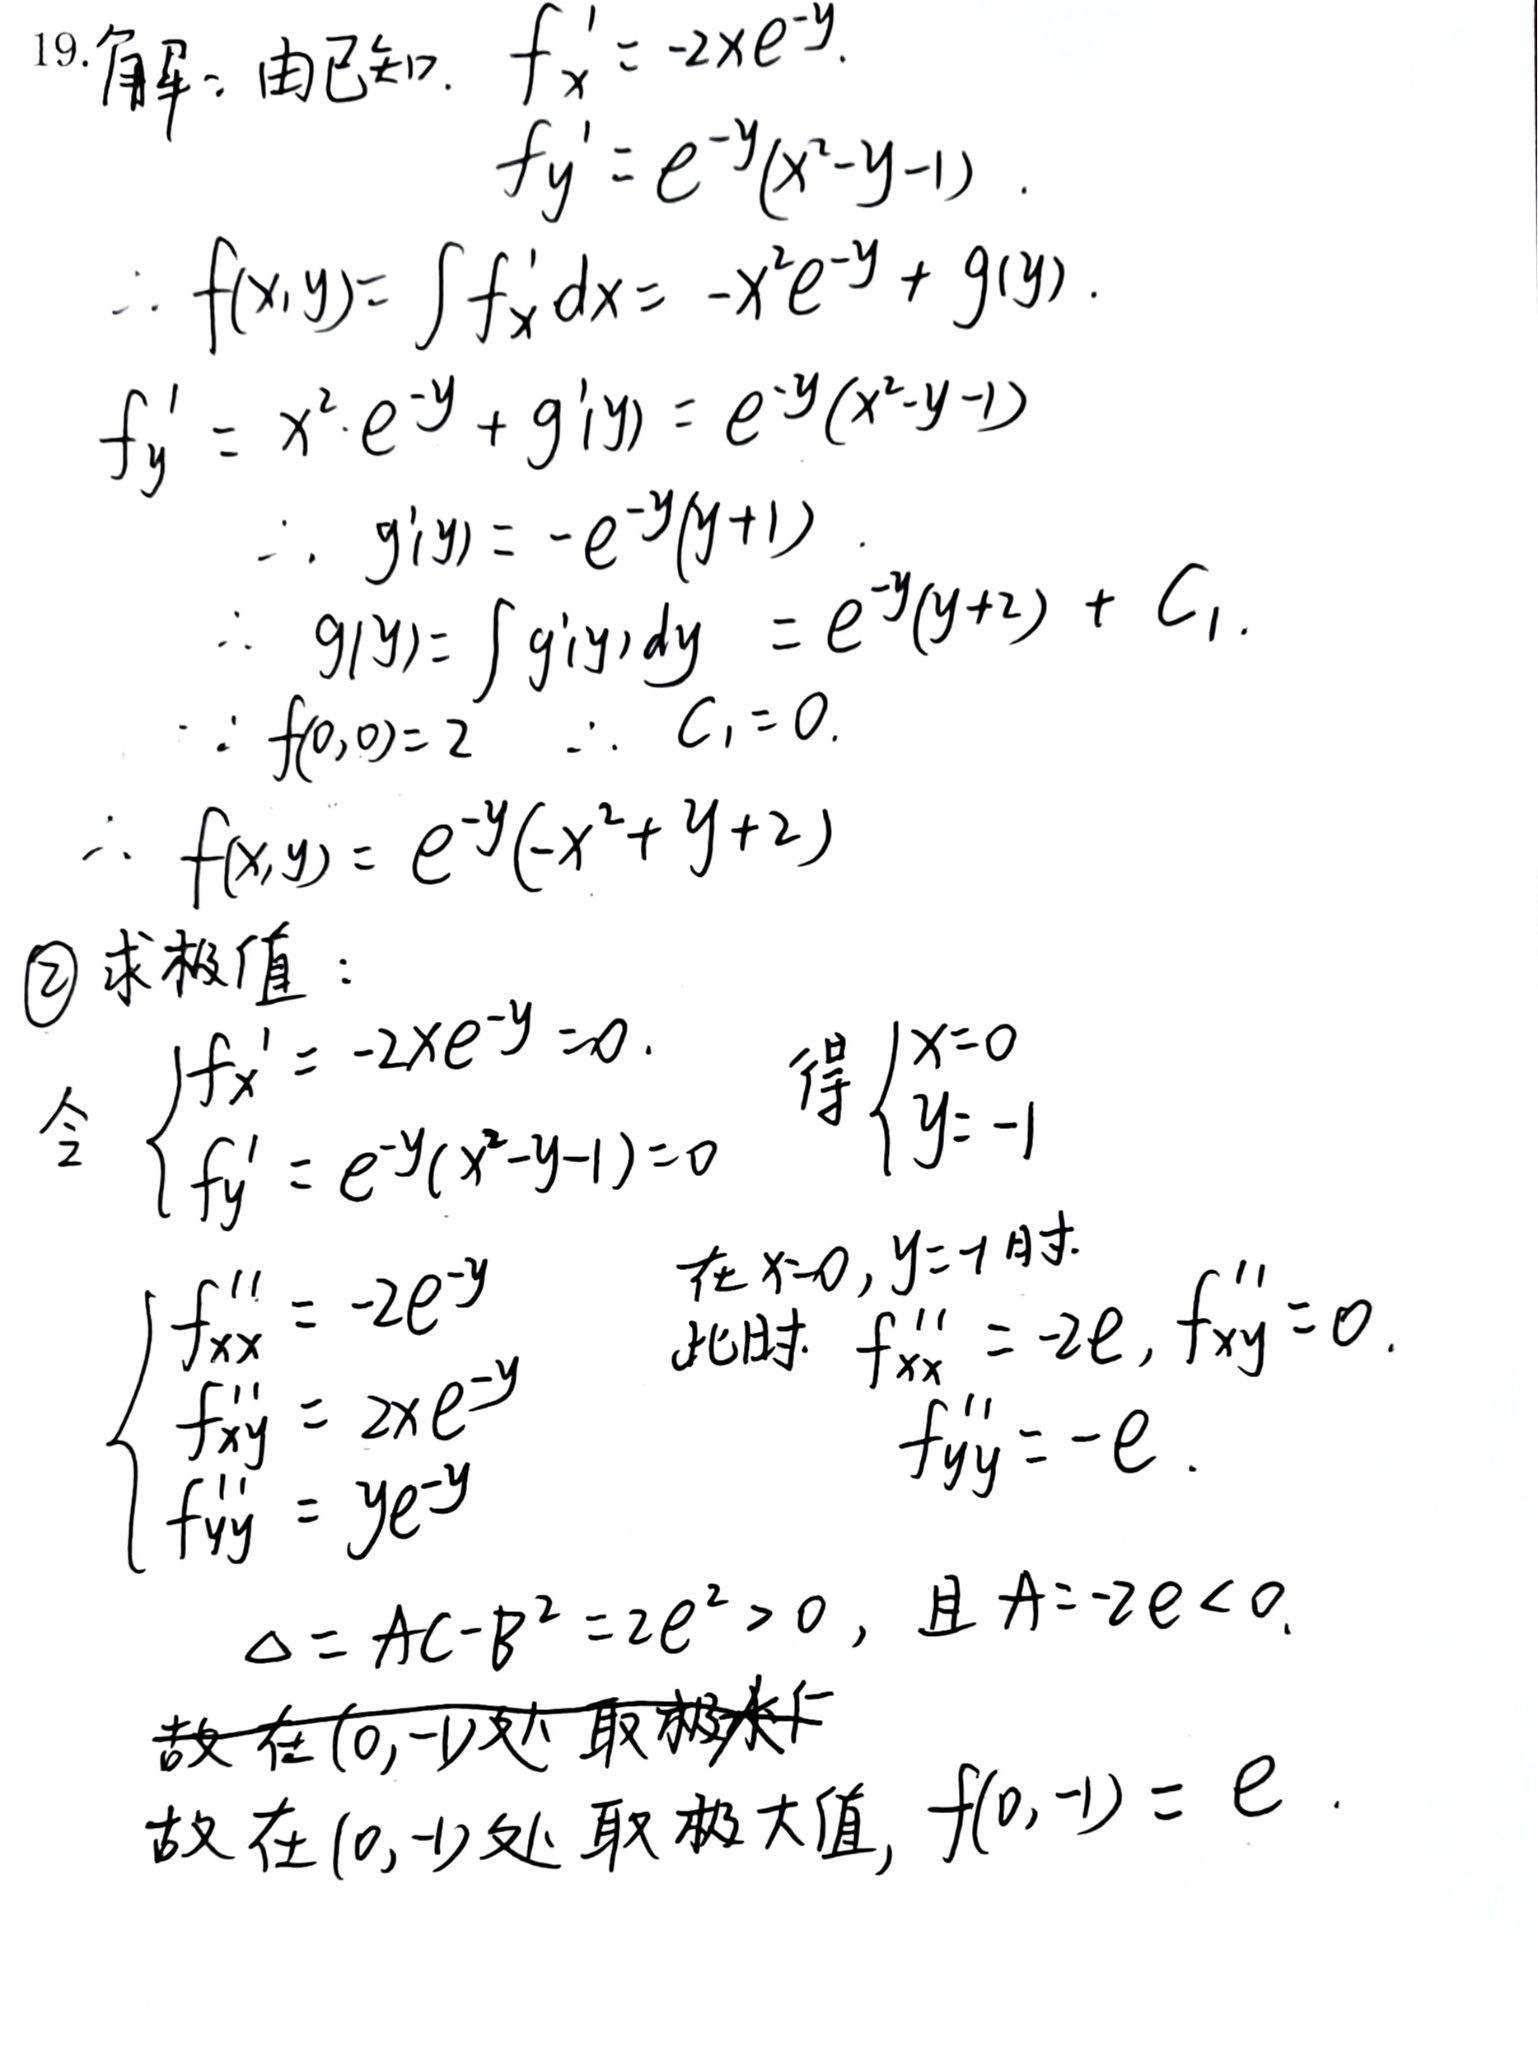 19. 解: 由已知. fx' = -2xe^{-y}.
fy' = e^{-y}(x²-y-1).
∴ f(x,y) = ∫fx'dx = -x²e^{-y} + g(y).
fy' = x²·e^{-y} + g'(y) = e^{-y}(x²-y-1)
∴ g'(y) = -e^{-y}(y+1).
∴ g(y) = ∫g'(y)dy = e^{-y}(y+2) + C₁.
∵ f(0,0)=2 ∴ C₁=0.
∴ f(x,y) = e^{-y}(-x²+y+2)
② 求极值:
令 { fx' = -2xe^{-y} = 0. 得 { x=0
fy' = e^{-y}(x²-y-1) = 0 y=-1
在x=0, y=-1时.
{ fxx'' = -2e^{-y} 此时. fxx'' = -2e, fxy'' = 0.
fxy'' = 2xe^{-y} fyy'' = -e.
fyy'' = ye^{-y}
△ = AC-B² = 2e² > 0, 且 A=-2e<0.
故在(0,-1)处取极大
故在(0,-1)处取极大值, f(0,-1) = e.